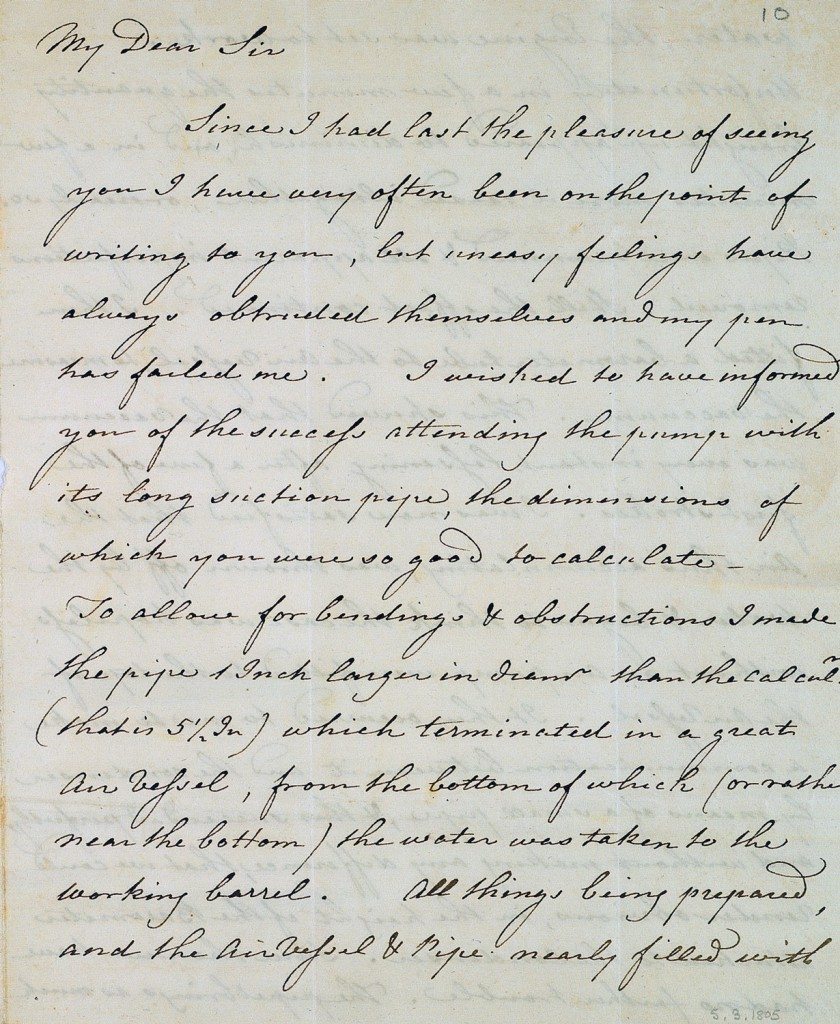 10
My Dear Sir
Since I had last the pleasure of seeing
you I have very often been on the point of
writing to you, but uneasy feelings have
always obtruded themselves and my pen
has failed me. I wished to have informed
you of the success attending the pump with
its long suction pipe, the dimensions of
which you were so good to calculate –
To allow for bendings & obstructions I made
the pipe 1 Inch larger in diamr than the calculn
(that is 5½ In) which terminated in a great
Air Vessel, from the bottom of which (or rathe
near the bottom) the water was taken to the
working barrel. All things being prepared,
and the Air Vessel & Pipe nearly filled with
5.3.1805